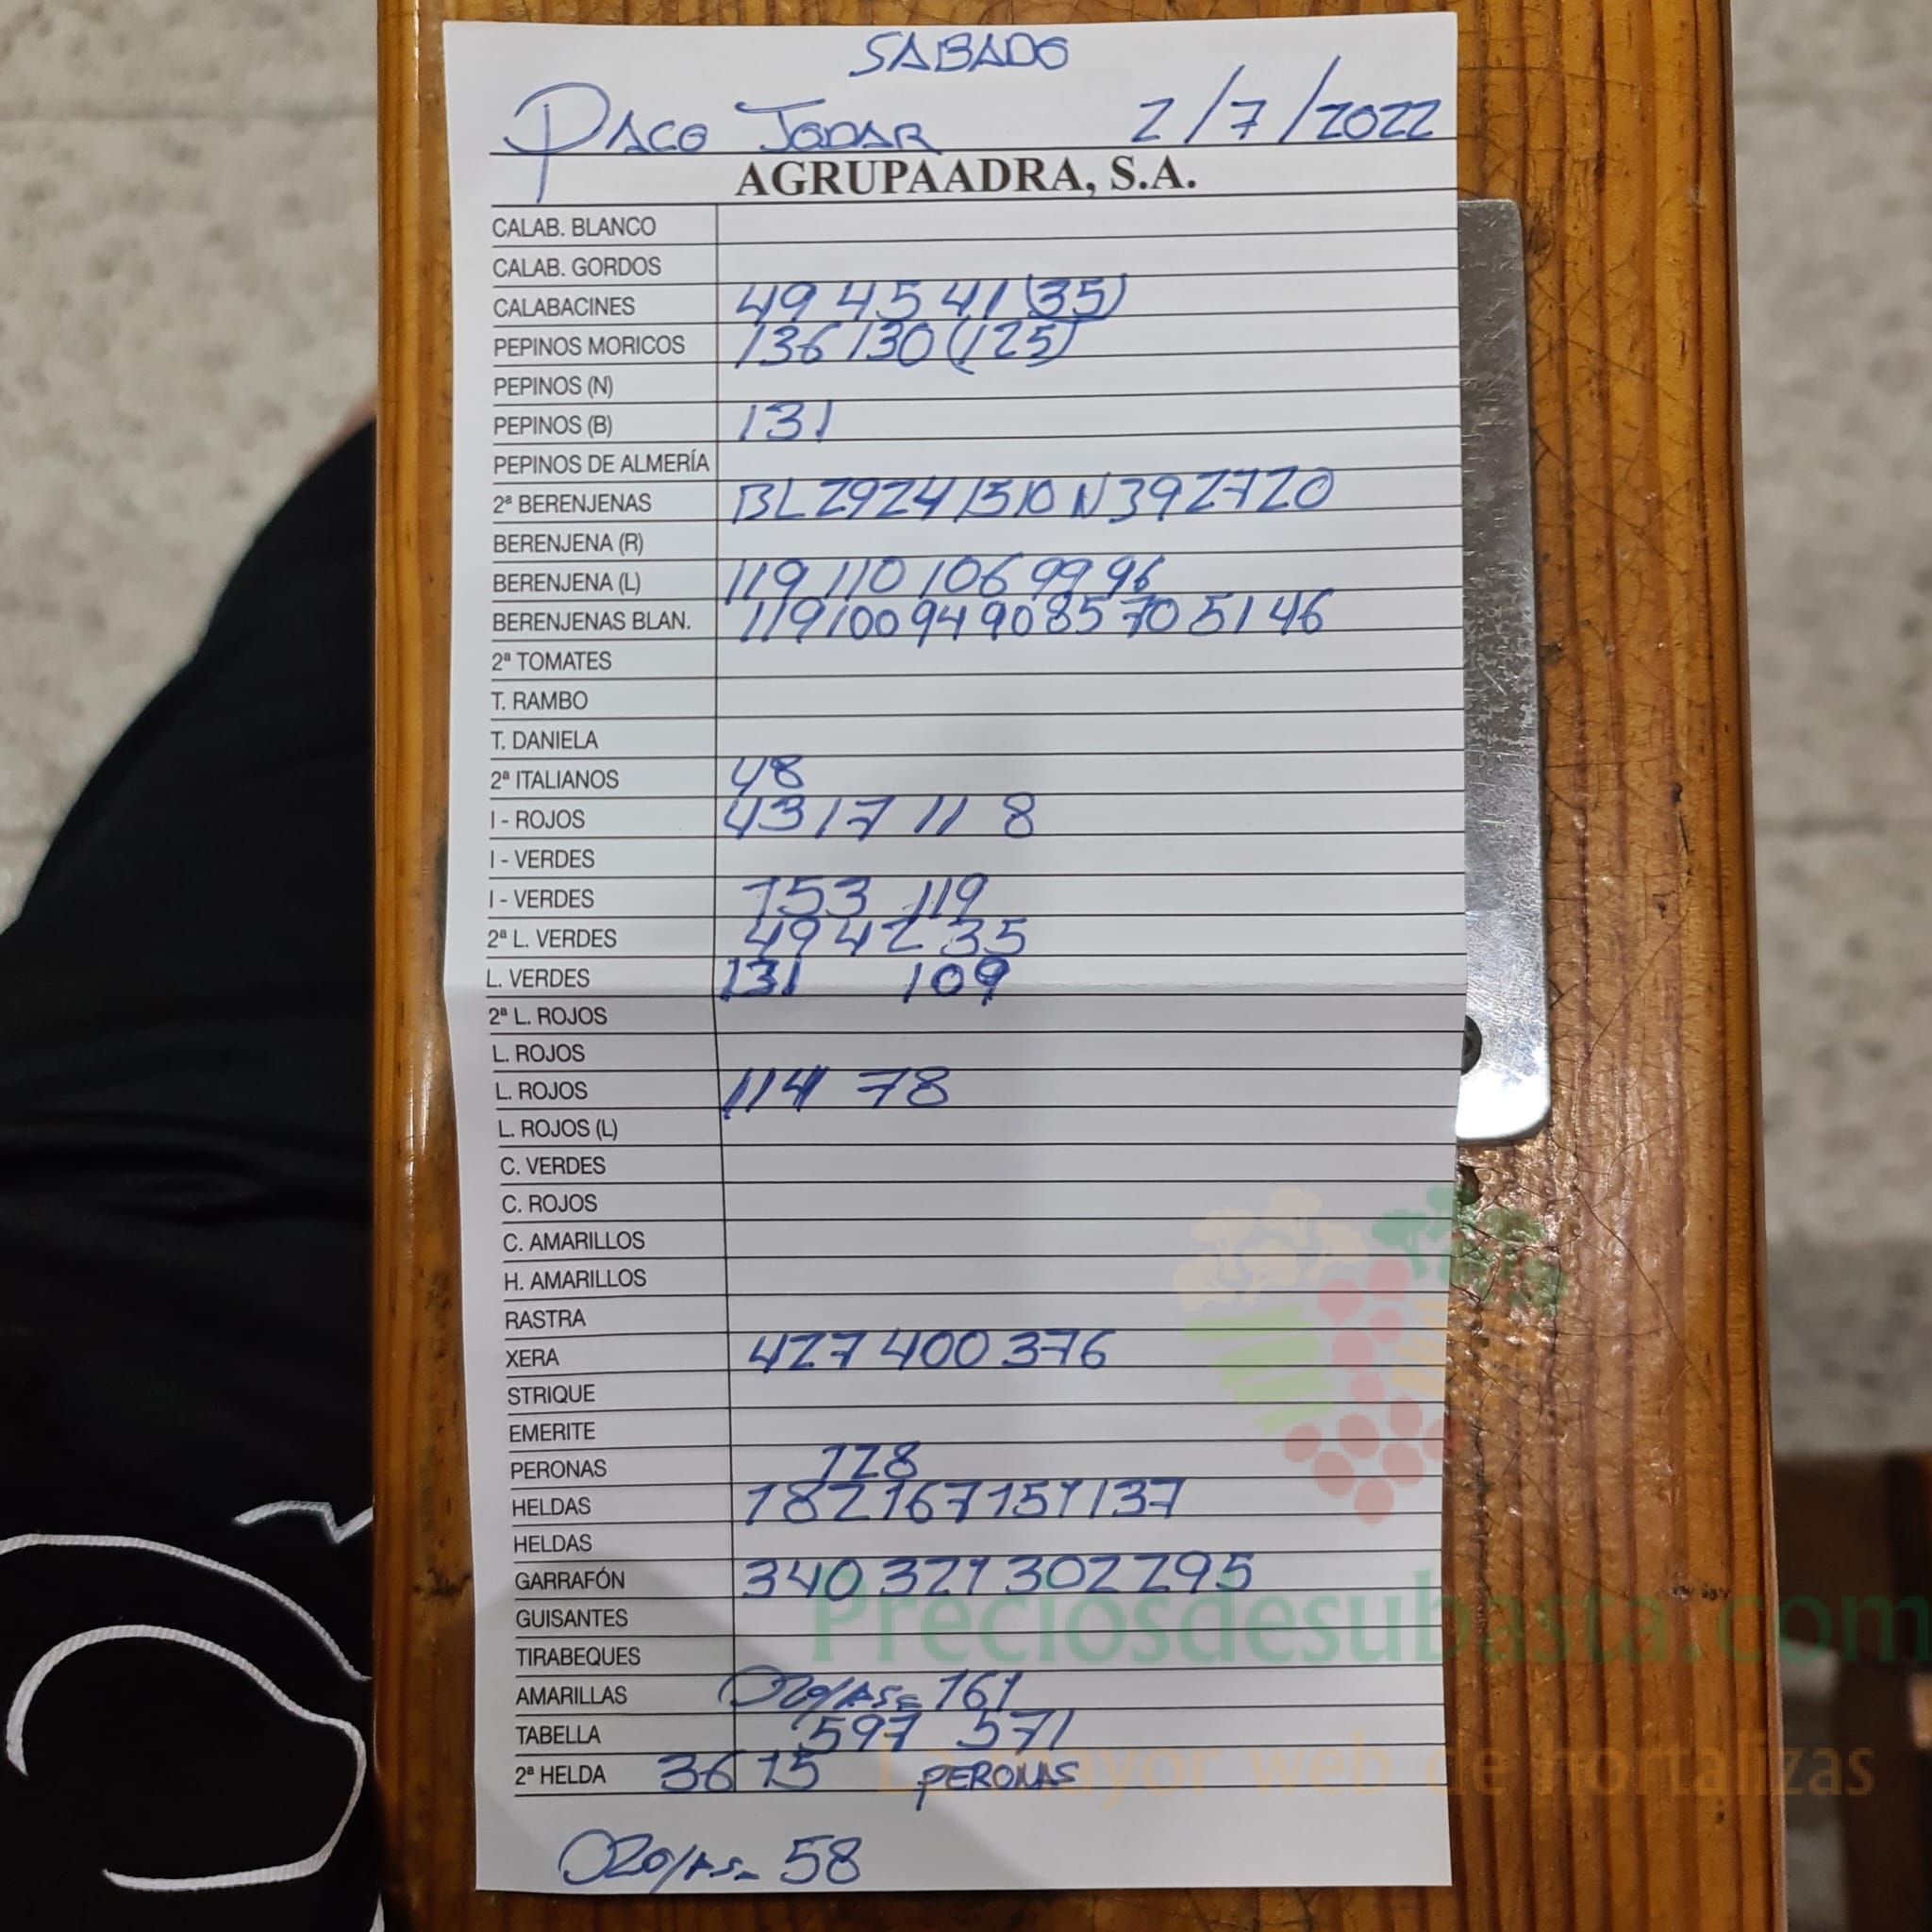 SABADO
PACO JODAR 2/7/2022
AGRUPAADRA, S.A.
CALAB. BLANCO
CALAB. GORDOS
CALABACINES 49 45 41 (35)
PEPINOS MORICOS 136 130 (125)
PEPINOS (N)
PEPINOS (B) 131
PEPINOS DE ALMERÍA
2ª BERENJENAS BL 29 24 15 10 N 39 27 20
BERENJENA (R)
BERENJENA (L) 119 110 106 99 96
BERENJENAS BLAN. 119 100 94 90 85 70 51 46
2ª TOMATES
T. RAMBO
T. DANIELA
2ª ITALIANOS 48
I - ROJOS 43 17 11 8
I - VERDES
I - VERDES 153 119
2ª L. VERDES 49 42 35
L. VERDES 131 109
2ª L. ROJOS
L. ROJOS
L. ROJOS 114 78
L. ROJOS (L)
C. VERDES
C. ROJOS
C. AMARILLOS
H. AMARILLOS
RASTRA
XERA 427 400 376
STRIQUE
EMERITE
PERONAS 128
HELDAS 182 167 151 137
HELDAS
GARRAFÓN 340 321 302 295
GUISANTES
TIRABEQUES
AMARILLAS 161
TABELLA 597 571
2ª HELDA 36 15 PERONAS
58
Preciosdesubasta.com
La mayor web de hortalizas